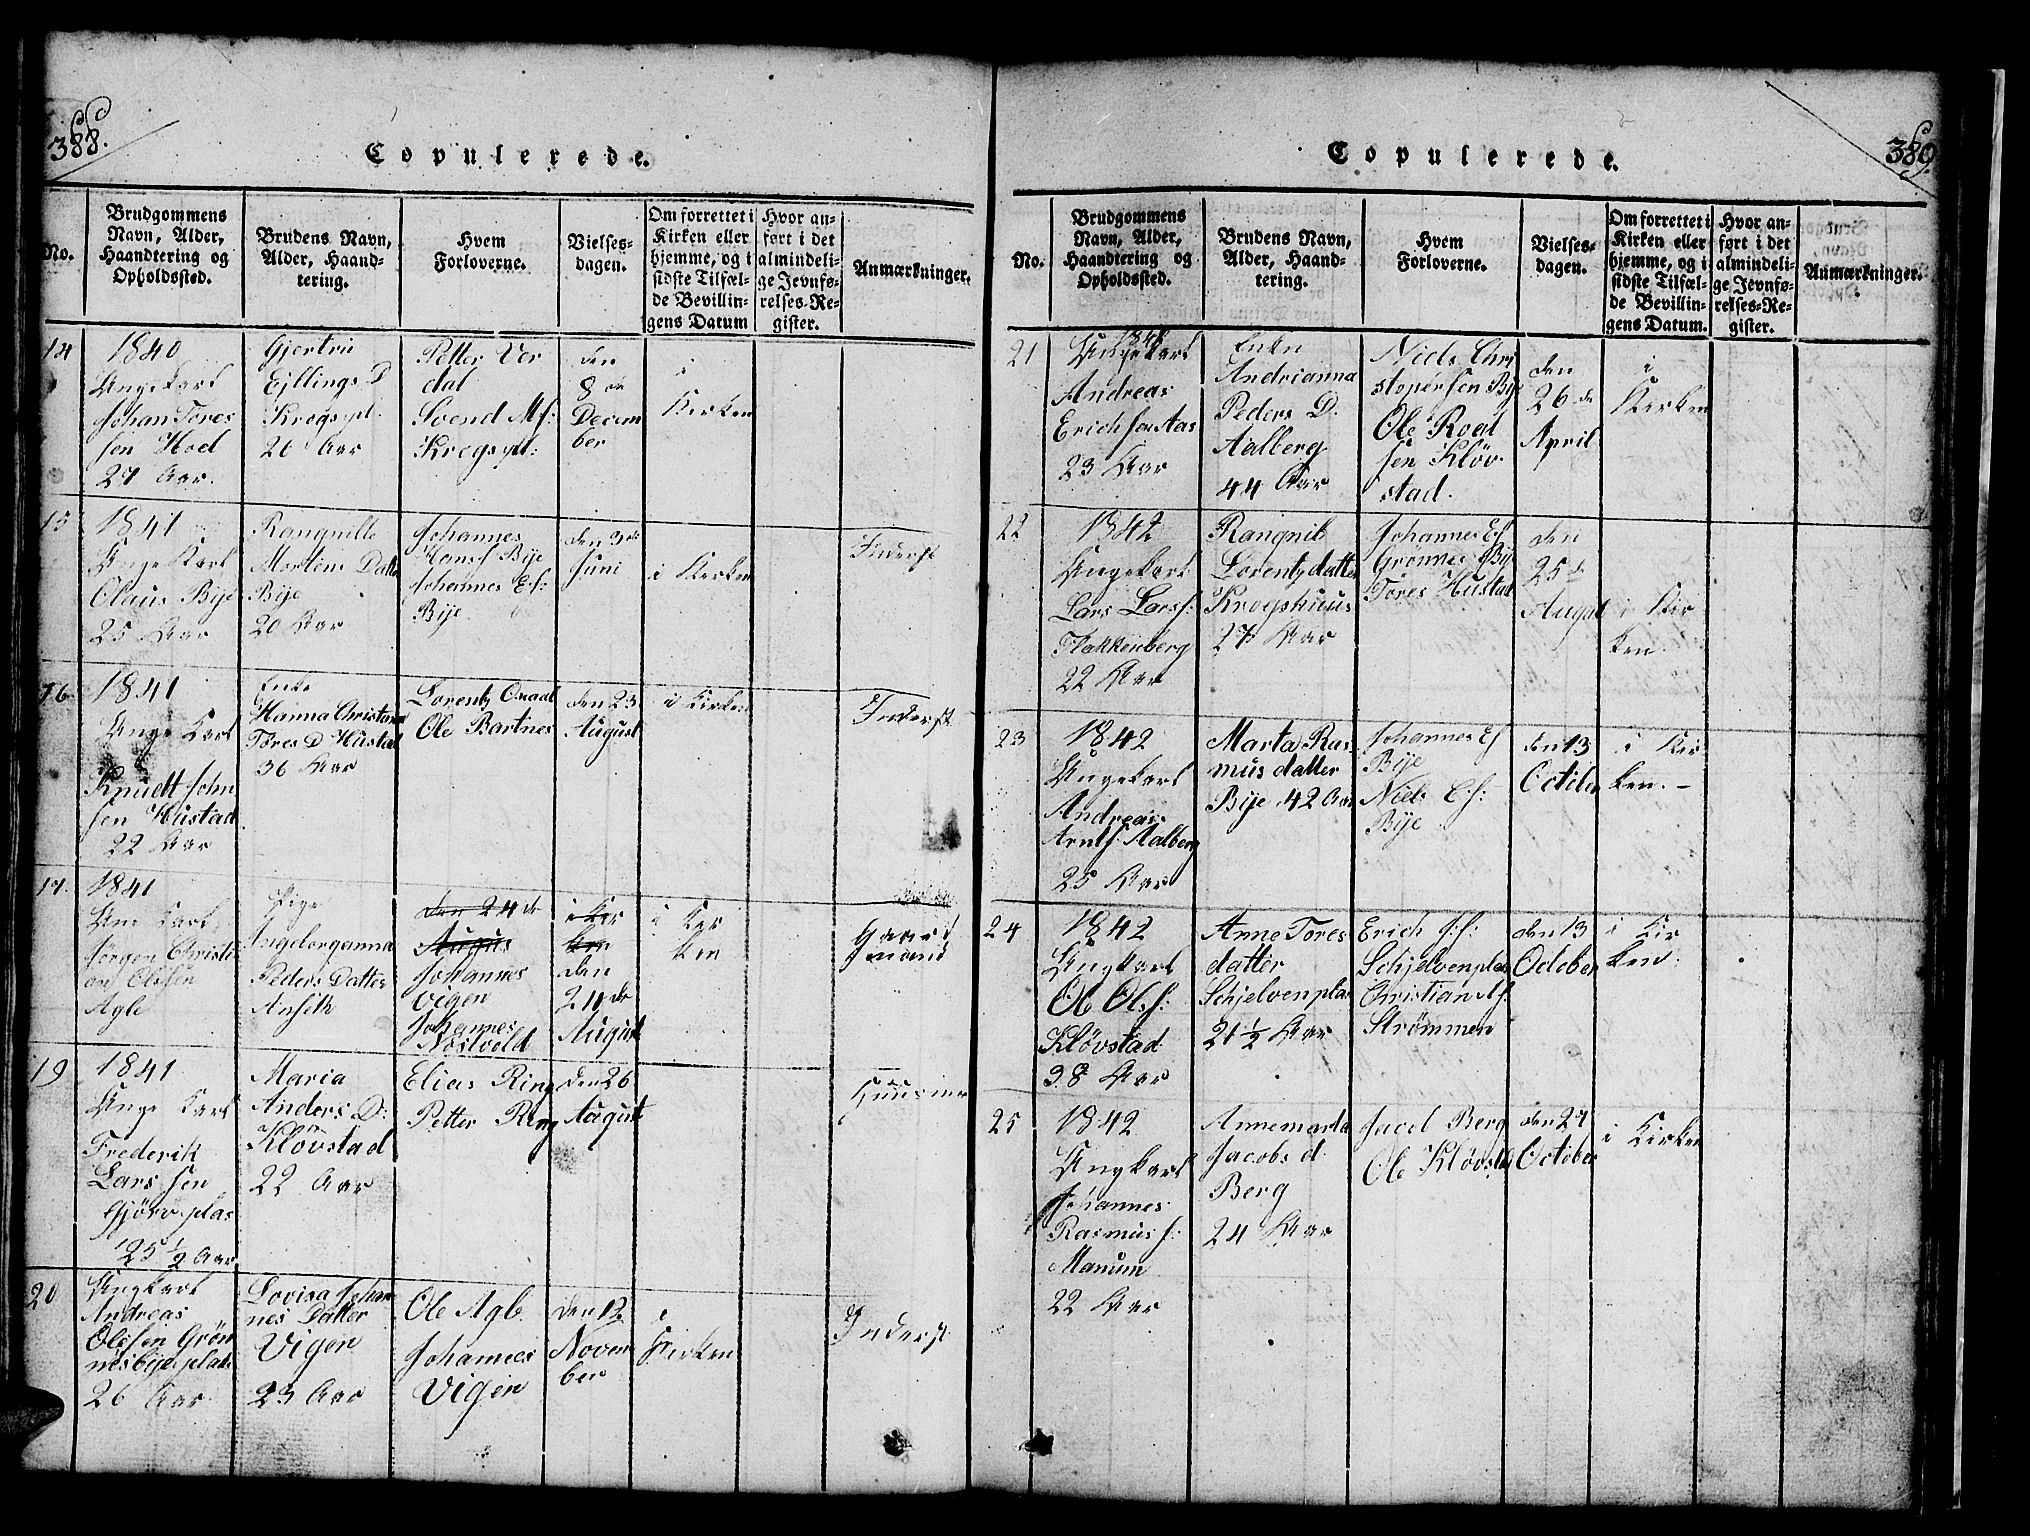 388.
Copulerede.
No.
Brudgommens
Navn, Alder,
Haandtering og
Opholdssted.
Brudens Navn,
Alder, Haand-
tering.
Hvem
Forloverne.
Vielses-
dagen.
Om forrettet i
Kirken eller
hjemme, og i
sidste Tilfæl-
de Bevillin-
gens Datum
Hvor an-
ført i det
almindeli-
ge Jevnfø-
relses-Re-
gister.
Anmærkninger.
14
1840
Ungekarl
Johan Tores
sen Hoel
27 Aar.
Gjertru
Ejllings D
Krogspl.
26 Aar
Petter Ver
dal
Svend Mf:
Krogspl:
den
8de
Decem
ber
i
Kirken
15
1841
Ungekarl
Olaus Bije
25 Aar
Rangnille
Mortens Datte
Bije
20 Aar
Johannes
Hansf Bije
Johannes Ef:
Bije
den 3de
Juni
i Kirken
Inderst
16
1841
Unge Karl
Knudt John
sen Hustad
22 Aar
Enke
Hanna Christian
Tores D Hustad
36 Aar
Lorentz
Ole Bartnes
den 23
August
i Kirken
Inderst
17.
1841
Une Karl
Jørgen Christi
an Olssen
Agle
Pige
Angelorganna
Peders Datter
den 24de
Augus
Johannes
Vigen
Johannes
Nostvold
i Kir
ken
den
24de
August
i Kir
ken
Gaard
mand
19
1841
Unge Karl
Frederik
Lars sen
Gjørv plas
25 1/2 Aar
Maria
Anders D:
Kløvstad
22 Aar
Elias Ring
Petter Ring
den 26
August
Huusmd
20
Ungkarl
Andreas
Olssen Grøn
nesbijeplads
26 Aar
Lovisa Johan
nes Datter
Vigen
23 Aar
Ole Agl
Johannes
Vigen
den 12
Novem
ber
i
Kirken
Inderst
389.
Copulerede.
No.
Brudgommens
Navn, Alder,
Haandtering og
Opholdssted.
Brudens Navn,
Alder, Haand-
tering.
Hvem
Forloverne.
Vielses-
dagen.
Om forrettet i
Kirken eller
hjemme, og i
sidste Tilfæl-
de Bevillin-
gens Datum.
Hvor an-
ført i det
almindeli-
ge Jevnfø-
relses-Re-
gister.
Anmærkninger.
21
Ungekarl
Andreas
Erichsen Aas
23 Aar
Enke
Andrianna
Peders D.
Aalberg
44 Aar
Niels Chri
stopersen Bije
Ole Roal
sen Kløv
stad.
den
26de
April
i
Kirken
22
1842
Ungekarl
Lars Larsf:
Flakkenberg
22 Aar
Rangnil
Lorentzdatter
Krogshuus
27 Aar
Johannes Ef
Grønnes Bije
Tores Hustad
den
25de
Augst
i Kir
ken
23
1842
Ungekarl
Andreas
Arntf Aalberg
25 Aar
Marta Ras
mus datter
Bije 42 Aar
Johannes Ef
Bije
Niels Ef:
Bije
den 13
October
i Kir
ken. –
24
1842
Ungkarl
Ol Olsf:
Kløvstad
38 Aar
Anne Tores
datter
Schjelvenplas
21 1/2 Aar
Erich J:f:
Schjelvenplas
Christian Af:
Strømmen
den 13
October
i Kir
ken:
25
1842
Ungkarl
Johannes
Rasmus f:
Manum
22 Aar
Annemarta
Jacobs d.
Berg
24 Aar
Jacob Berg
Ole Kløvstad
den 27
October
i Kirken